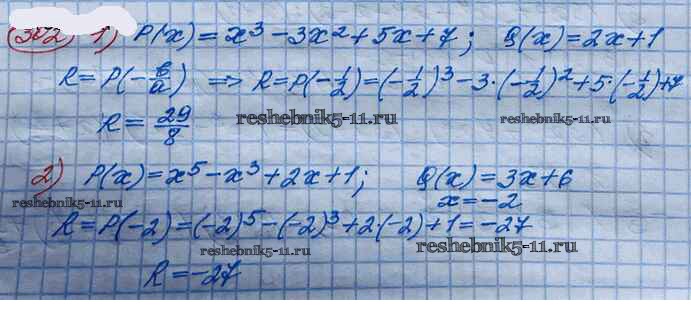 382) 1) P(x) = x³ − 3x² + 5x + 7; Q(x) = 2x + 1
R = P(−b/a) ⟹ R = P(−1/2) = (−1/2)³ − 3·(−1/2)² + 5·(−1/2) + 7
R = 29/8
reshebnik5-11.ru reshebnik5-11.ru
2) P(x) = x⁵ − x³ + 2x + 1; Q(x) = 3x + 6
reshebnik5-11.ru x = −2
R = P(−2) = (−2)⁵ − (−2)³ + 2(−2) + 1 = −27
reshebnik5-11.ru reshebnik5-11.ru
R = −27
reshebnik5-11.ru